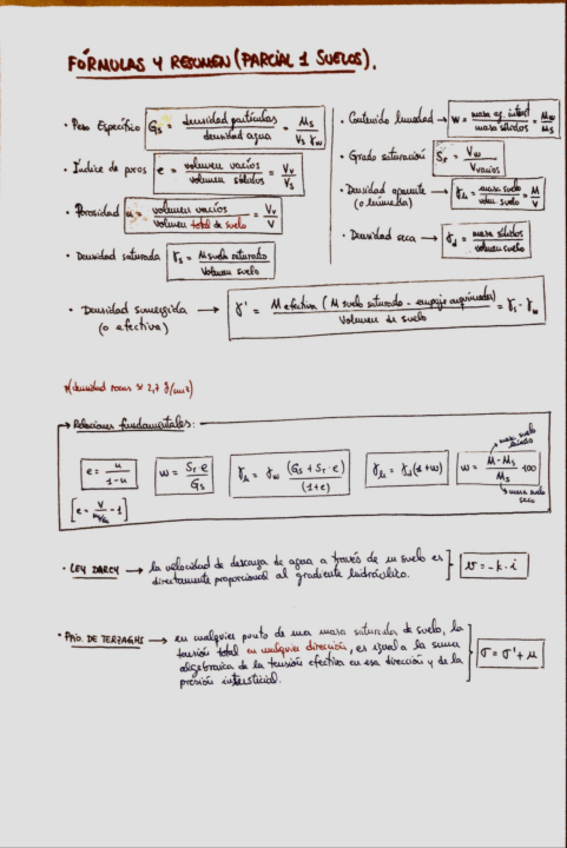 FÓRMULAS Y RESUMEN (PARCIAL 1 SUELOS).
• Peso Específico Gs = densidad partículas / densidad agua = Ms / Vs γw
• Índice de poros e = volumen vacíos / volumen sólidos = Vv / Vs
• Porosidad n = volumen vacíos / volumen total de suelo = Vv / V
• Densidad saturada γs = M suelo saturado / Volumen suelo
• Contenido humedad → w = masa ag. interst / masa sólidos = Mw / Ms
• Grado saturación Sr = Vw / Vvacíos
• Densidad aparente (o húmeda) → γh = masa suelo / volu. suelo = M / V
• Densidad seca → γd = masa sólidos / volumen suelo
• Densidad sumergida → γ' = M efectiva (M suelo saturado - empuje arquímedes) / Volumen de suelo = γs - γw
(o efectiva)
(densidad rocas ≈ 2,7 g/cm3)
→ Relaciones fundamentales:
e = n / 1-n
w = Sr·e / Gs
γh = γw (Gs + Sr·e) / (1+e)
γh = γd (1+w)
w = M - Ms / Ms 100
masa suelo
masa suelo seco
• LEY DARCY → la velocidad de descarga de agua a través de un suelo es
directamente proporcional al gradiente hidráulico.
v = -k·i
• PPIO. DE TERZAGHI → en cualquier punto de una masa saturada de suelo, la
tensión total en cualquier dirección, es igual a la suma
algebraica de la tensión efectiva en esa dirección y de la
presión intersticial.
σ = σ' + u